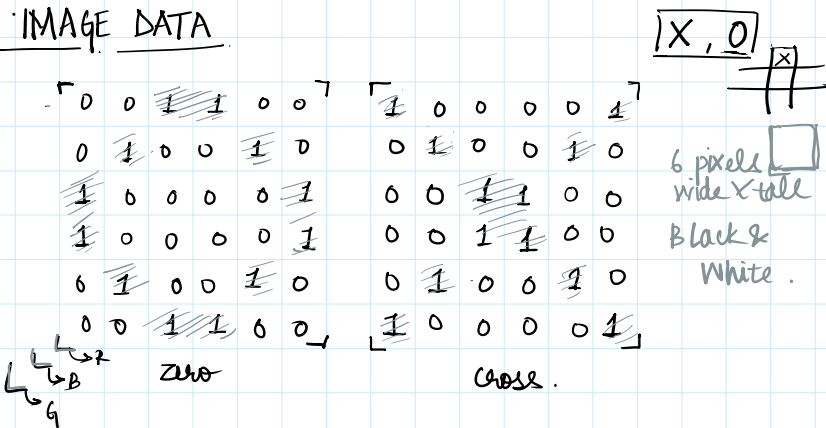 IMAGE DATA
X, 0
X
0 0 1 1 0 0
0 1 0 0 1 0
1 0 0 0 0 1
1 0 0 0 0 1
0 1 0 0 1 0
0 0 1 1 0 0
Zero
R
B
G
1 0 0 0 0 1
0 1 0 0 1 0
0 0 1 1 0 0
0 0 1 1 0 0
0 1 0 0 1 0
1 0 0 0 0 1
Cross.
6 pixels
wide X tall
Black &
White.